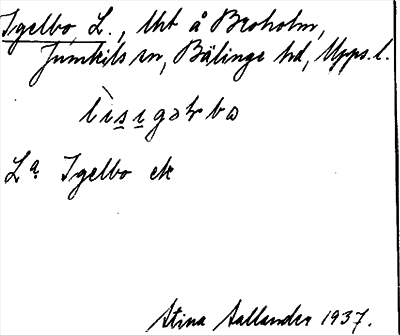 Igelbo, L., lht å Broholm,
Jumkils sn, Bälinge hd, Upps. l.
La Igelbo ek
Stina Aallander 1937.